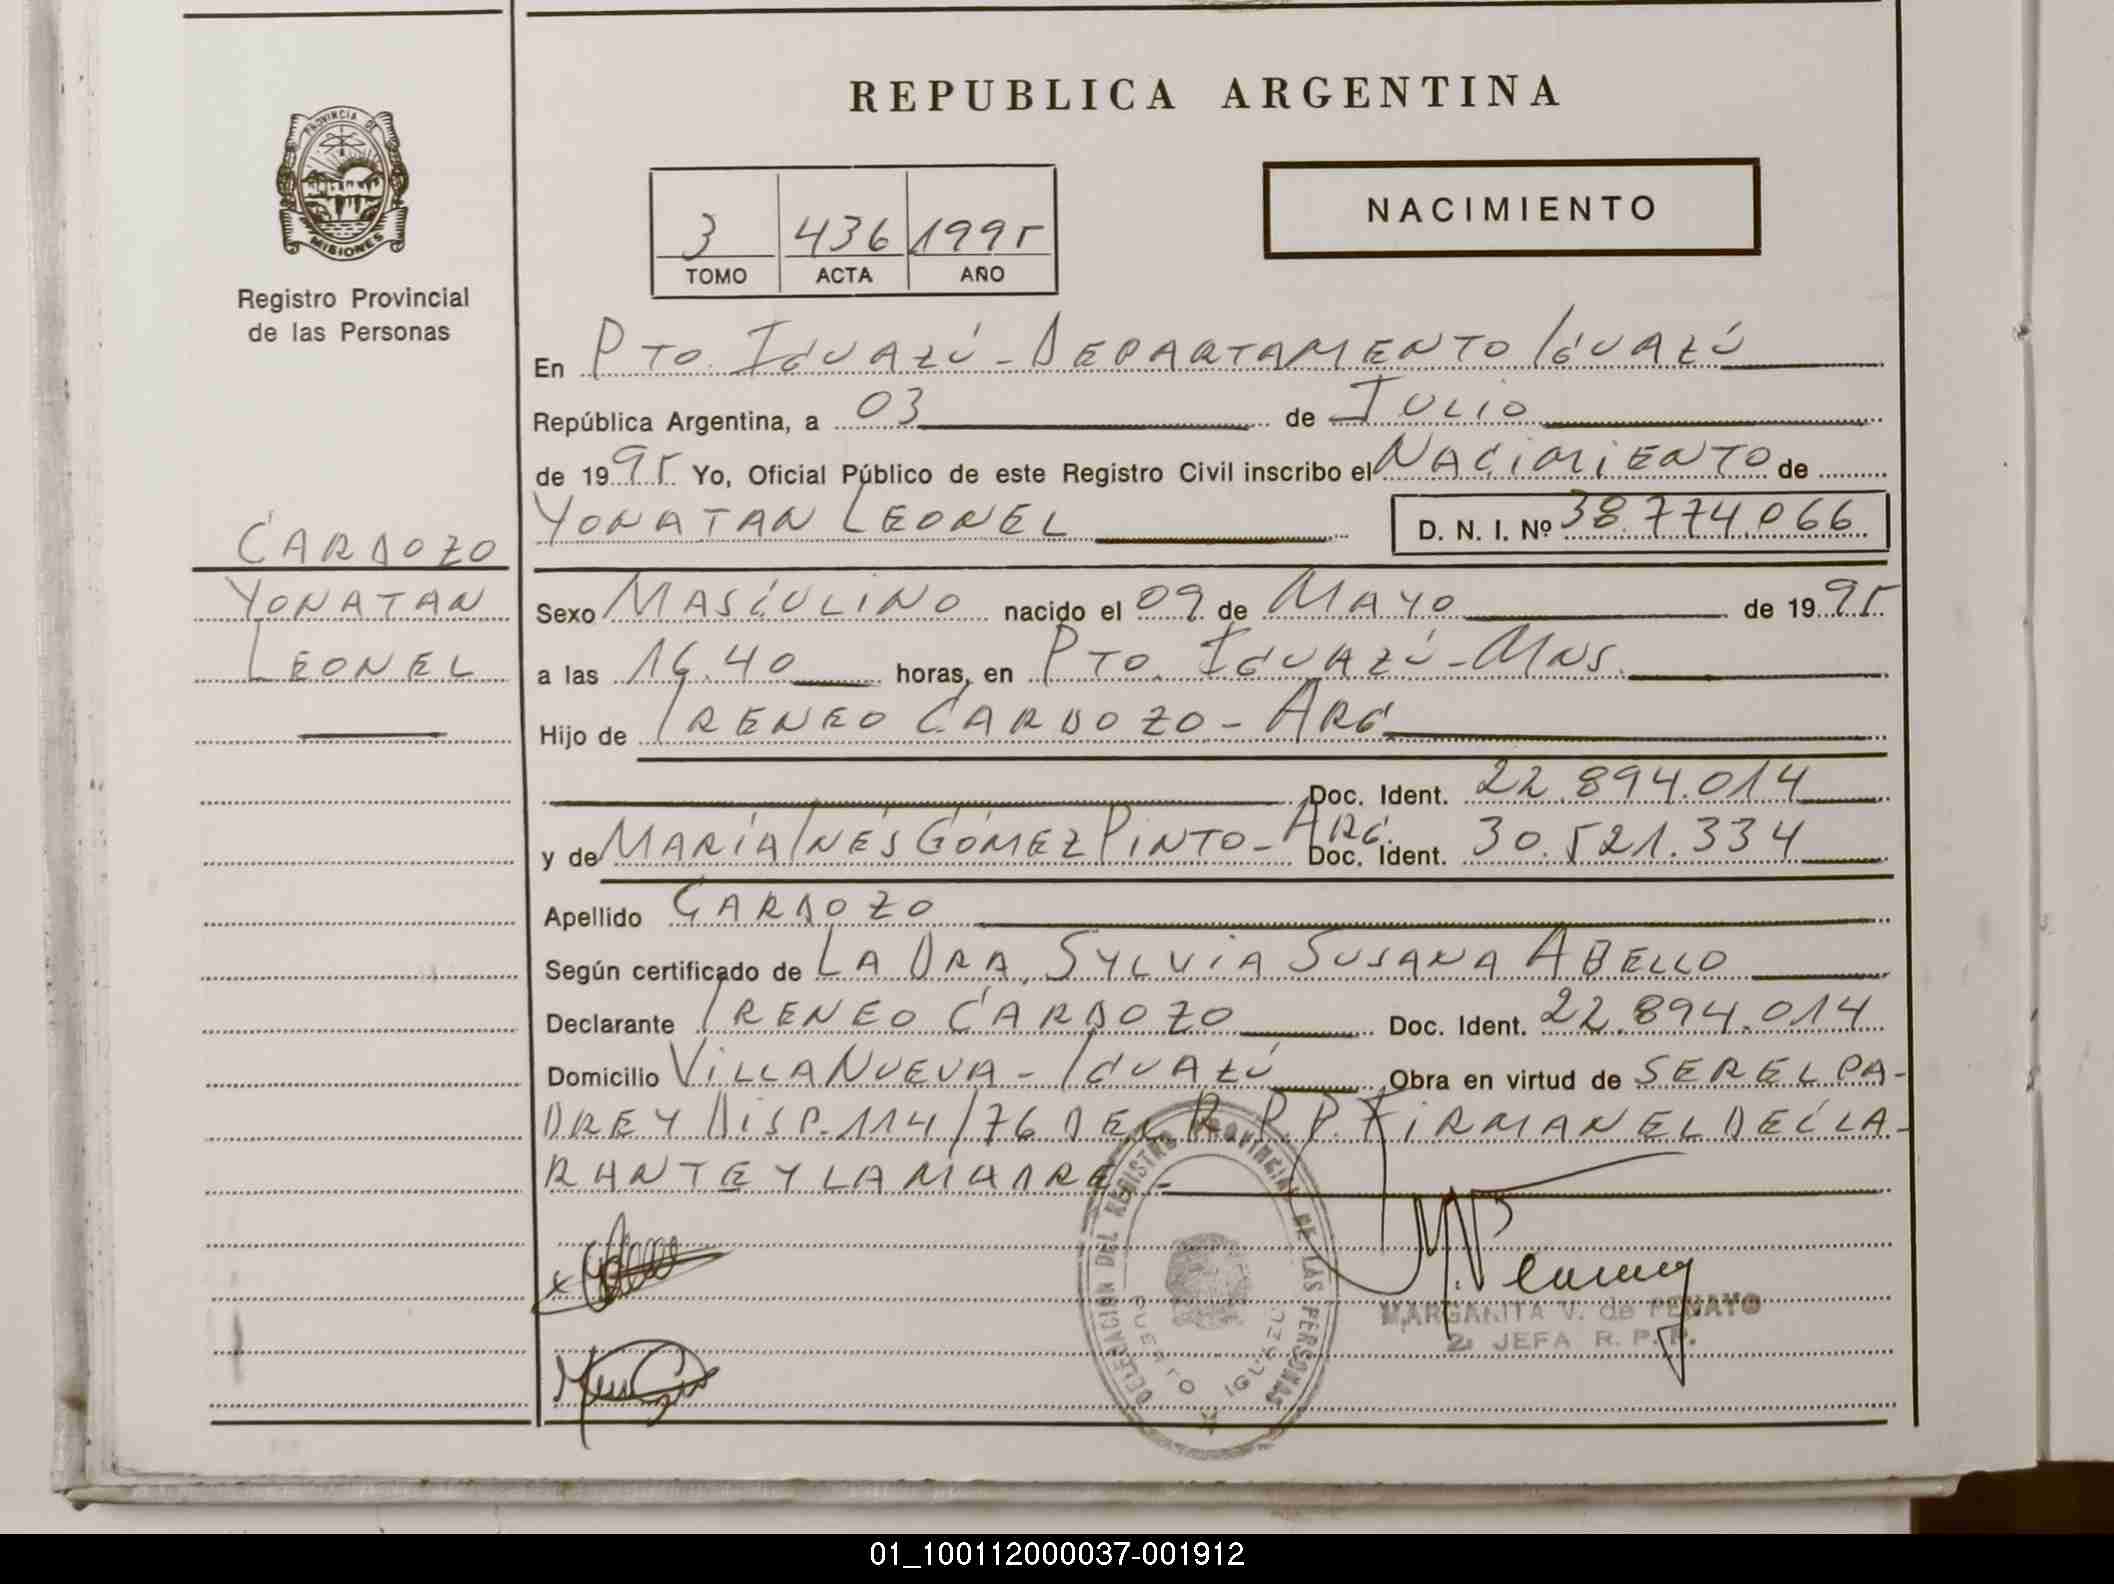 REPUBLICA ARGENTINA
PROVINCIA DE
MISIONES
Registro Provincial
de las Personas
NACIMIENTO
3 436 1995
TOMO ACTA AÑO
En PTO. IGUAZÚ - DEPARTAMENTO IGUAZÚ
República Argentina, a 03 de JULIO
de 1995 Yo, Oficial Público de este Registro Civil inscribo el NACIMIENTO de
YONATAN LEONEL D. N. I. Nº 38.774.066
CARDOZO
YONATAN
LEONEL
Sexo MASCULINO nacido el 09 de MAYO de 1995
a las 16.40 horas, en PTO. IGUAZÚ - MNS.
Hijo de IRENEO CARDOZO - ARG
Doc. Ident. 22.894.014
y de MARÍA INÉS GÓMEZ PINTO - ARG. Doc. Ident. 30.521.334
Apellido CARDOZO
Según certificado de LA DRA. SYLVIA SUSANA ABELLO
Declarante IRENEO CARDOZO Doc. Ident. 22.894.014
Domicilio VILLA NUEVA - IGUAZÚ Obra en virtud de SER EL PA-
DRE Y DISP. 114/76 DEL R.P.P. FIRMAN EL DECLA-
RANTE Y LA MADRE -
DELEGACION DEL REGISTRO PROVINCIAL DE LAS PERSONAS
PUERTO IGUAZU
MARGARITA V. de PENAYO
2ª JEFA R. P. P.
01_100112000037-001912